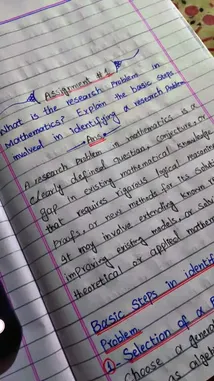 Assignment # 1
What is the research problem in
Mathematics? Explain the basic steps
involved in identifying a research problem
Ans
A research Problem in mathematics is a
clearly defined question, conjecture, or
gap in existing mathematical knowledge
that requires rigorous logical reasoning
Proofs, or new methods for its solution
It may involve extending known
improving existing models, or
theoretical or applied mathem
Basic Steps in identif
Problem
1- Selection of a
Choose a gener
as algeb